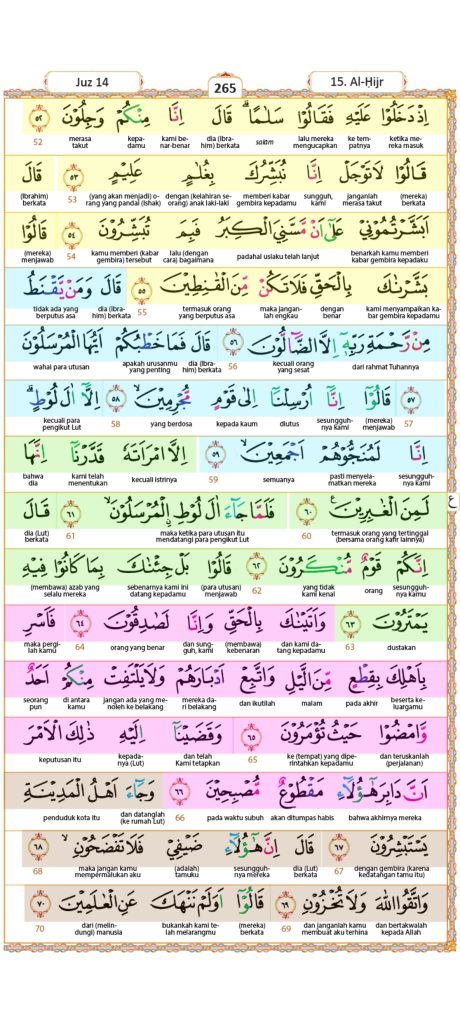 Juz 14
265
15. Al-Ḥijr
اِذْ دَخَلُوْا عَلَيْهِ فَقَالُوْا سَلٰمًاۗ قَالَ اِنَّا مِنْكُمْ وَجِلُوْنَ ٥٢
ketika me-reka masuk ke tem-patnya lalu mereka mengucapkan salam dia (Ibra-him) berkata kami be-nar-benar kepa-damu merasa takut 52
قَالُوْا لَا تَوْجَلْ اِنَّا نُبَشِّرُكَ بِغُلٰمٍ عَلِيْمٍ ٥٣ قَالَ
(mereka) berkata janganlah merasa takut sungguh, kami memberi kabar gembira kepadamu dengan (kelahiran se-orang) anak laki-laki (yang akan menjadi) o-rang yang pandai (Ishak) 53 (Ibrahim) berkata
اَبَشَّرْتُمُوْنِيْ عَلٰٓى اَنْ مَّسَّنِيَ الْكِبَرُ فَبِمَ تُبَشِّرُوْنَ ٥٤ قَالُوْا
benarkah kamu memberi kabar gembira kepadaku padahal usiaku telah lanjut lalu (dengan cara) bagaimana kamu memberi (kabar gembira) tersebut 54 (mereka) menjawab
بَشَّرْنٰكَ بِالْحَقِّ فَلَا تَكُنْ مِّنَ الْقٰنِطِيْنَ ٥٥ قَالَ وَمَنْ يَّقْنَطُ
kami menyampaikan ka-bar gembira kepadamu dengan benar maka jangan-lah engkau termasuk orang yang berputus asa 55 dia (Ibra-him) berkata tidak ada yang berputus asa
مِنْ رَّحْمَةِ رَبِّهٖٓ اِلَّا الضَّاۤلُّوْنَ ٥٦ قَالَ فَمَا خَطْبُكُمْ اَيُّهَا الْمُرْسَلُوْنَ
dari rahmat Tuhannya kecuali orang yang sesat 56 dia (Ibra-him) berkata apakah urusanmu yang penting wahai para utusan
٥٧ قَالُوْٓا اِنَّآ اُرْسِلْنَآ اِلٰى قَوْمٍ مُّجْرِمِيْنَۙ ٥٨ اِلَّآ اٰلَ لُوْطٍۗ
57 (mereka) menjawab sesungguh-nya kami diutus kepada kaum yang berdosa 58 kecuali para pengikut Lut
اِنَّا لَمُنَجُّوْهُمْ اَجْمَعِيْنَۙ ٥٩ اِلَّا امْرَاَتَهٗ قَدَّرْنَآ اِنَّهَا
sesungguh-nya kami pasti menyela-matkan mereka semuanya 59 kecuali istrinya kami telah menentukan bahwa dia
لَمِنَ الْغٰبِرِيْنَ ٦٠ فَلَمَّا جَاۤءَ اٰلَ لُوْطِ ِۨالْمُرْسَلُوْنَۙ ٦١ قَالَ
termasuk orang yang tertinggal (bersama orang kafir lainnya) 60 maka ketika para utusan itu mendatangi para pengikut Lut 61 dia (Lut) berkata
اِنَّكُمْ قَوْمٌ مُّنْكَرُوْنَ ٦٢ قَالُوْا بَلْ جِئْنٰكَ بِمَا كَانُوْا فِيْهِ
sesungguh-nya kamu orang yang tidak kami kenal 62 (para utusan) menjawab sebenarnya kami ini datang kepadamu (membawa) azab yang selalu mereka
يَمْتَرُوْنَ ٦٣ وَاَتَيْنٰكَ بِالْحَقِّ وَاِنَّا لَصٰدِقُوْنَ ٦٤ فَاَسْرِ
dustakan 63 dan kami da-tang kepadamu (membawa) kebenaran dan sung-guh, kami orang yang benar 64 maka pergi-lah kamu
بِاَهْلِكَ بِقِطْعٍ مِّنَ الَّيْلِ وَاتَّبِعْ اَدْبَارَهُمْ وَلَا يَلْتَفِتْ مِنْكُمْ اَحَدٌ
beserta ke-luargamu pada akhir malam dan ikutilah mereka da-ri belakang jangan ada yang me-noleh ke belakang di antara kamu seorang pun
وَّامْضُوْا حَيْثُ تُؤْمَرُوْنَ ٦٥ وَقَضَيْنَآ اِلَيْهِ ذٰلِكَ الْاَمْرَ
dan teruskanlah (perjalanan) ke (tempat) yang dipe-rintahkan kepadamu 65 dan telah Kami tetapkan kepada-nya (Lut) keputusan itu
اَنَّ دَابِرَ هٰٓؤُلَاۤءِ مَقْطُوْعٌ مُّصْبِحِيْنَ ٦٦ وَجَاۤءَ اَهْلُ الْمَدِيْنَةِ
bahwa akhirnya mereka akan ditumpas habis pada waktu subuh 66 dan datanglah (ke rumah Lut) penduduk kota itu
يَسْتَبْشِرُوْنَ ٦٧ قَالَ اِنَّ هٰٓؤُلَاۤءِ ضَيْفِيْ فَلَا تَفْضَحُوْنِۙ ٦٨
dengan gembira (karena kedatangan tamu itu) 67 dia (Lut) berkata sesungguh-nya mereka (adalah) tamuku maka jangan kamu mempermalukan aku 68
وَاتَّقُوا اللّٰهَ وَلَا تُخْزُوْنِ ٦٩ قَالُوْٓا اَوَلَمْ نَنْهَكَ عَنِ الْعٰلَمِيْنَ ٧٠
dan bertakwalah kepada Allah dan janganlah kamu membuat aku terhina 69 (mereka) berkata bukankah kami te-lah melarangmu dari (melin-dungi) manusia 70
ع